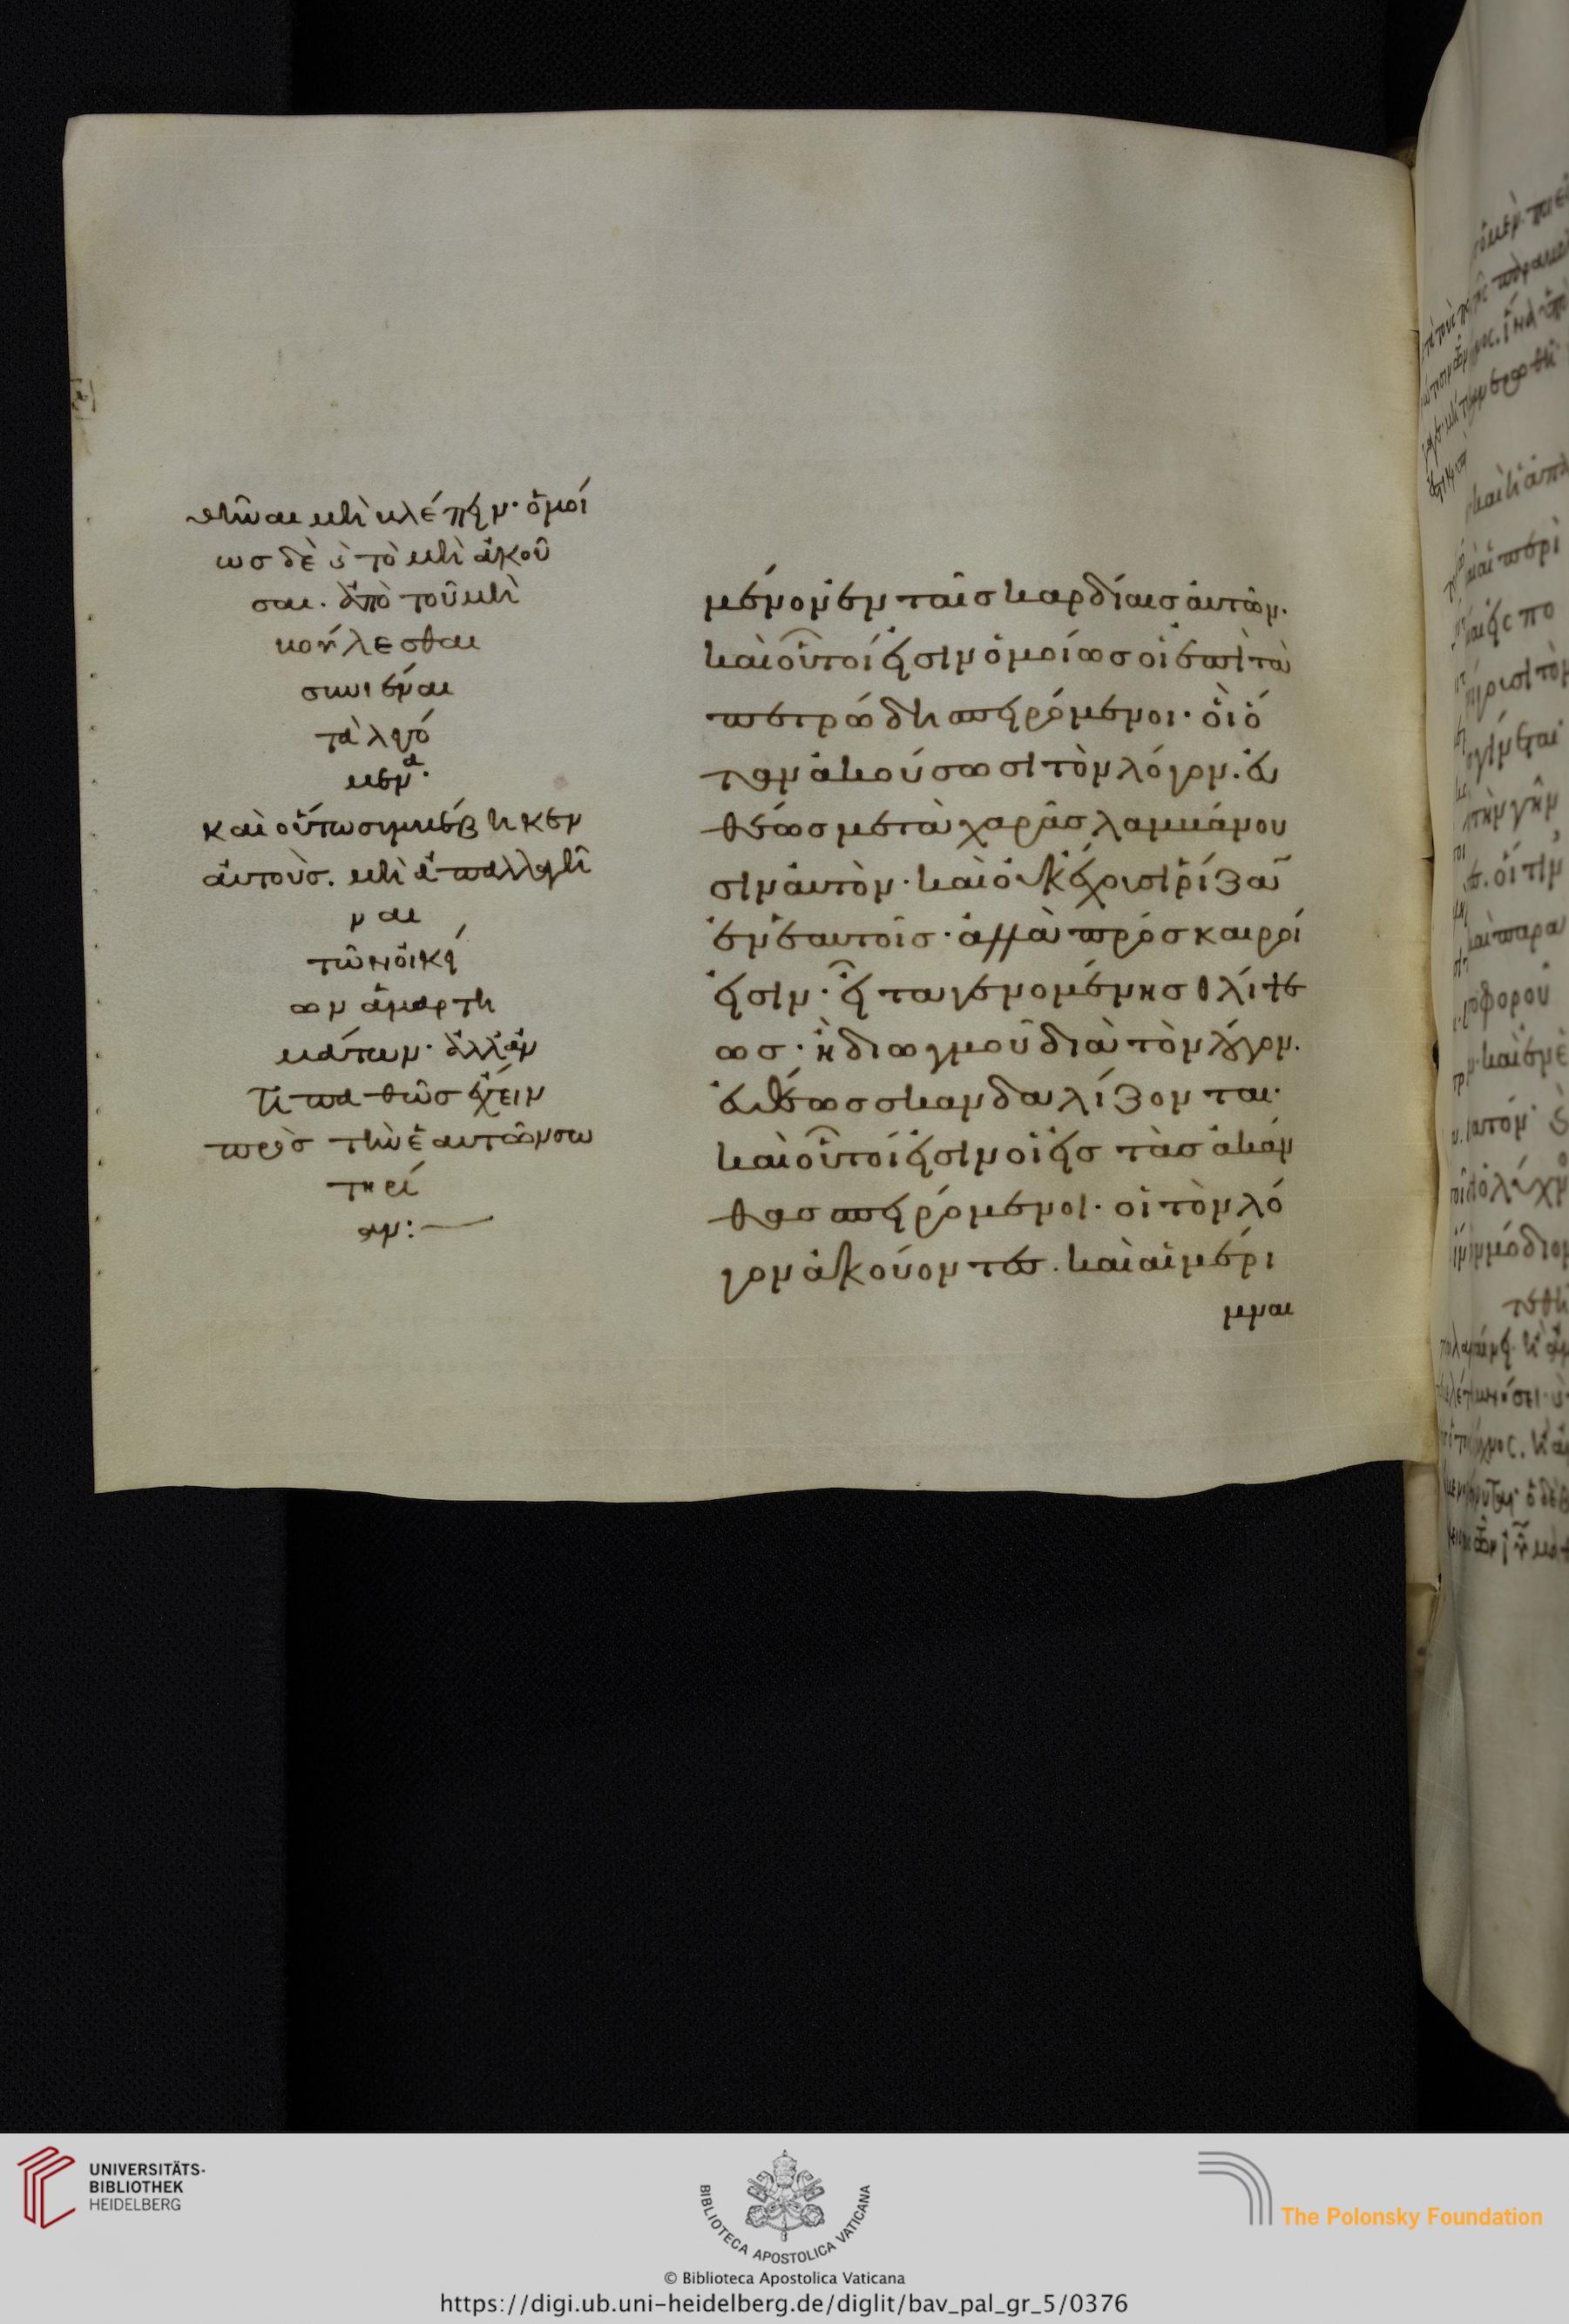 θῆναι μὴ βλέπειν· ὁμοί
ως δὲ καὶ τὸ μὴ ἀκοῦ
σαι. ἀπὸ τοῦ μὴ
βούλεσθαι
συνιέναι
τὰ λεγό
μενα·
καὶ οὕτω συμβέβηκεν
αὐτοὺσ. μὴ ἀπαλλαγῆ
ναι
τῶν οἰκεί
ων ἁμαρτη
μάτων· ἀλλ' ἀν
τιπαθῶσ ἔχειν
πρὸσ τὴν ἑαυτῶν σω
τηρί
αν:—
μένον ἐν ταῖσ καρδίαισ αὐτῶν.
καὶ οὗτοί εἰσιν ὁμοίωσ οἱ ἐπὶ τὰ
πετρώδη σπειρόμενοι· οἳ ὅ
ταν ἀκούσωσι τὸν λόγον. εὐ
θέωσ μετὰ χαρᾶσ λαμβάνου
σιν αὐτὸν· καὶ οὐκ ἔχουσι ῥίζαν
ἐν ἑαυτοῖσ· ἀλλὰ πρόσκαιροί
εἰσιν· εἶτα γενομένησ θλίψε
ωσ· ἢ διωγμοῦ διὰ τὸν λόγον.
εὐθέωσ σκανδαλίζονται·
καὶ οὗτοί εἰσιν οἱ εἰσ τὰσ ἀκάν
θασ σπειρόμενοι· οἱ τὸν λό
γον ἀκούοντεσ. καὶ αἱ μέρι
μναι
UNIVERSITÄTS-
BIBLIOTHEK
HEIDELBERG
BIBLIOTECA APOSTOLICA VATICANA
The Polonsky Foundation
© Biblioteca Apostolica Vaticana
https://digi.ub.uni-heidelberg.de/diglit/bav_pal_gr_5/0376